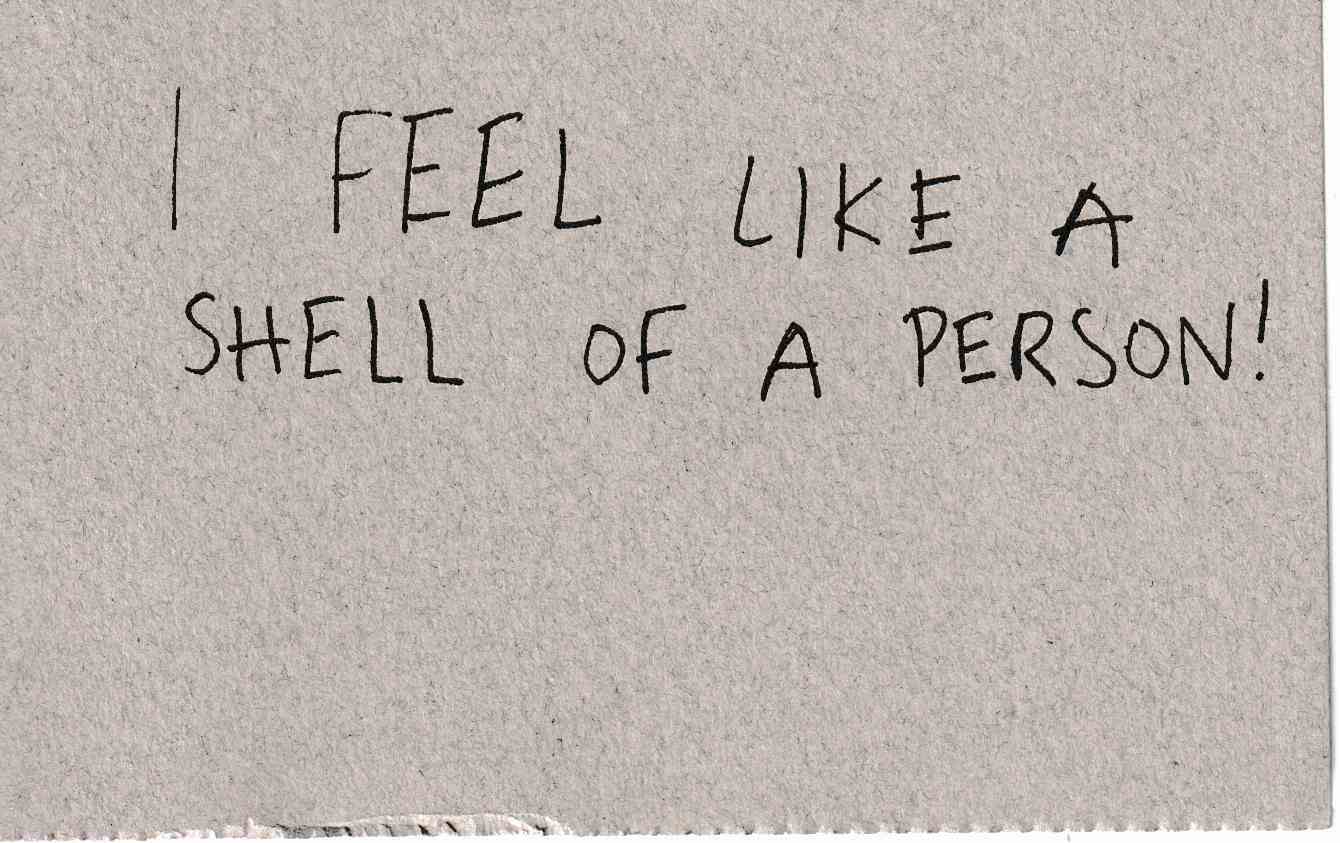 I FEEL LIKE A
SHELL OF A PERSON!